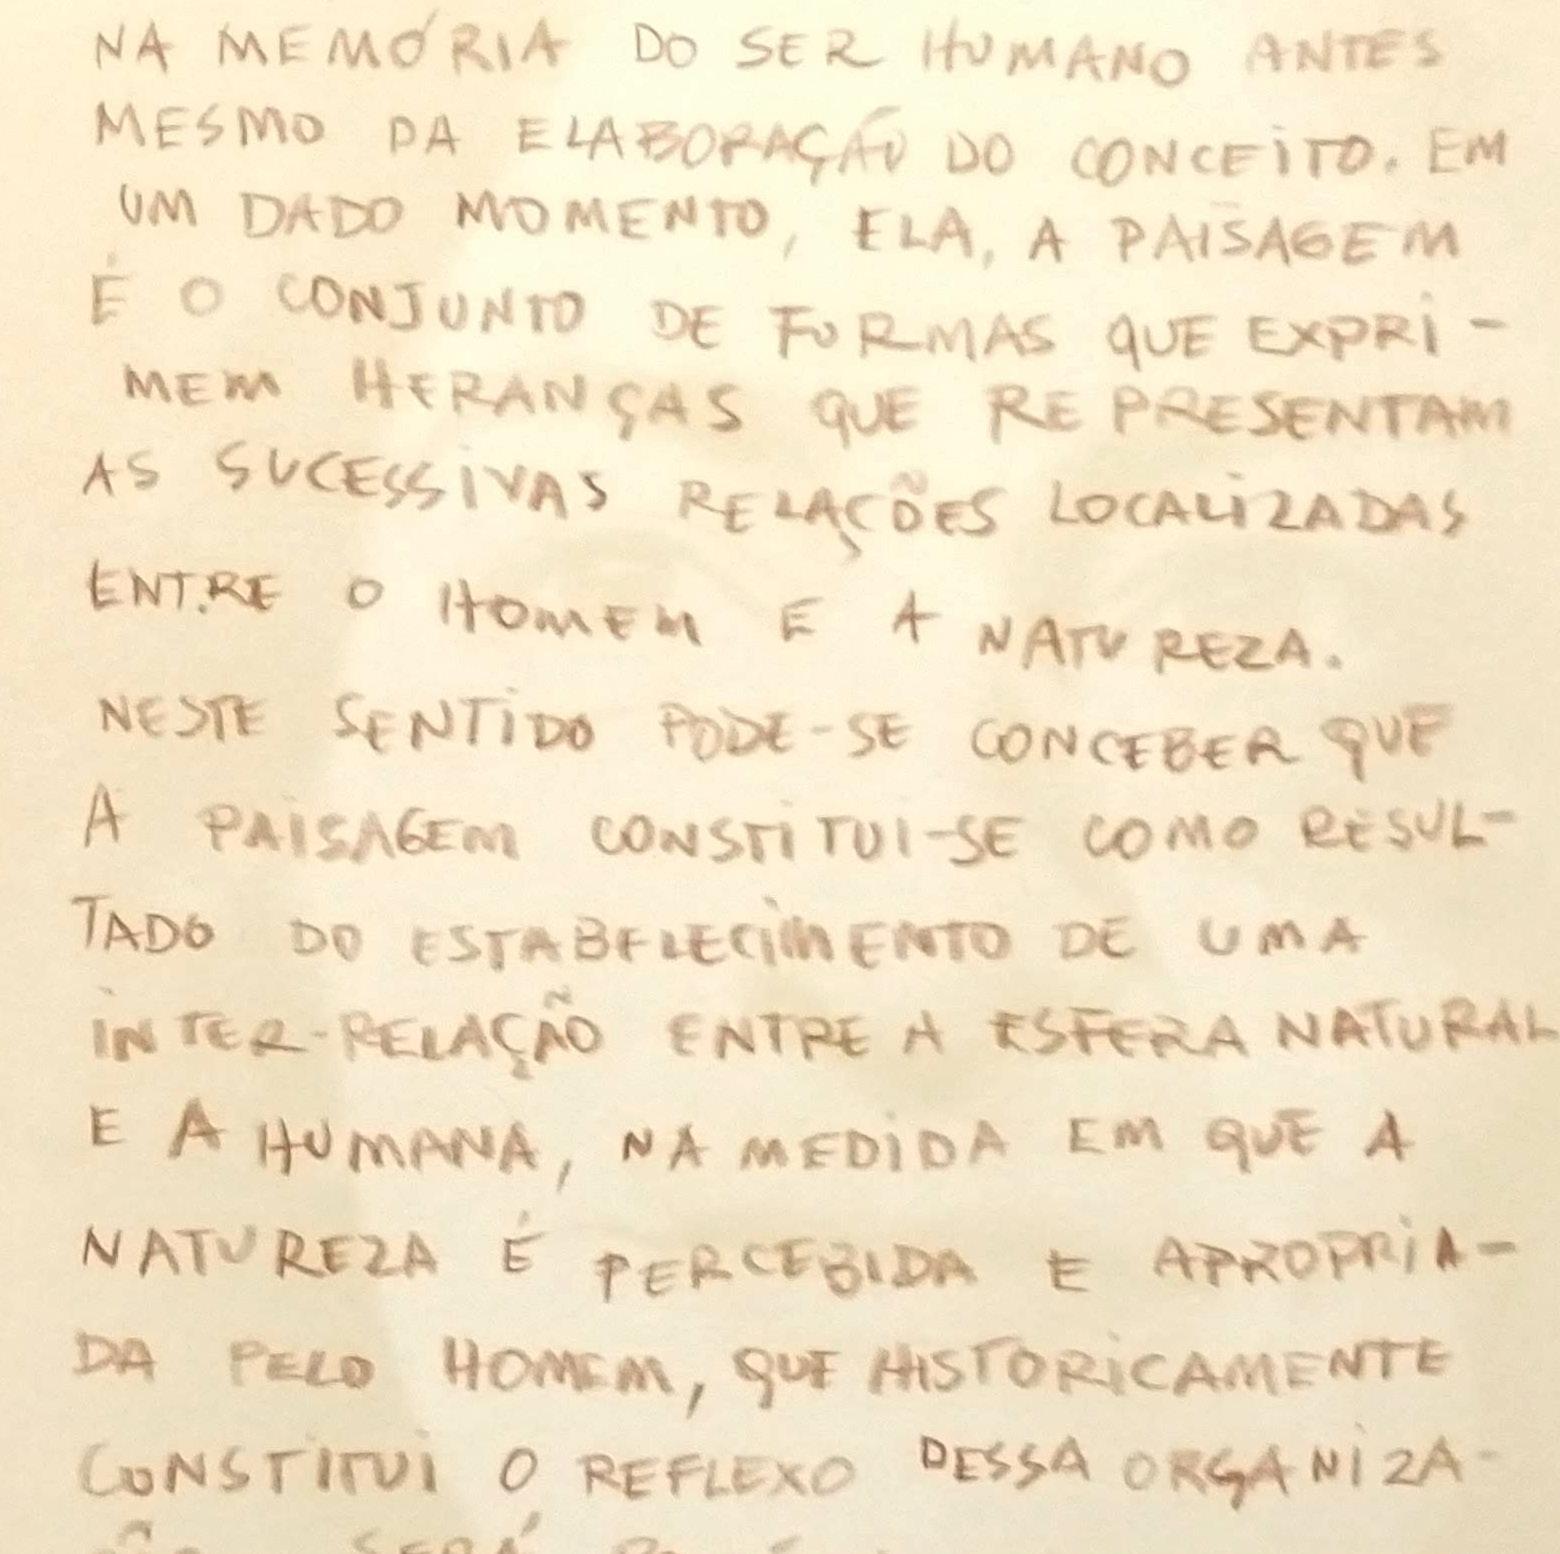 NA MEMÓRIA DO SER HUMANO ANTES
MESMO DA ELABORAÇÃO DO CONCEITO. EM
UM DADO MOMENTO, ELA, A PAISAGEM
É O CONJUNTO DE FORMAS QUE EXPRI-
MEM HERANÇAS QUE REPRESENTAM
AS SUCESSIVAS RELAÇÕES LOCALIZADAS
ENTRE O HOMEM E A NATUREZA.
NESTE SENTIDO PODE-SE CONCEBER QUE
A PAISAGEM CONSTITUI-SE COMO RESUL-
TADO DO ESTABELECIMENTO DE UMA
INTER-RELAÇÃO ENTRE A ESFERA NATURAL
E A HUMANA, NA MEDIDA EM QUE A
NATUREZA É PERCEBIDA E APROPRIA-
DA PELO HOMEM, QUE HISTORICAMENTE
CONSTITUI O REFLEXO DESSA ORGANIZA-
SERÁ